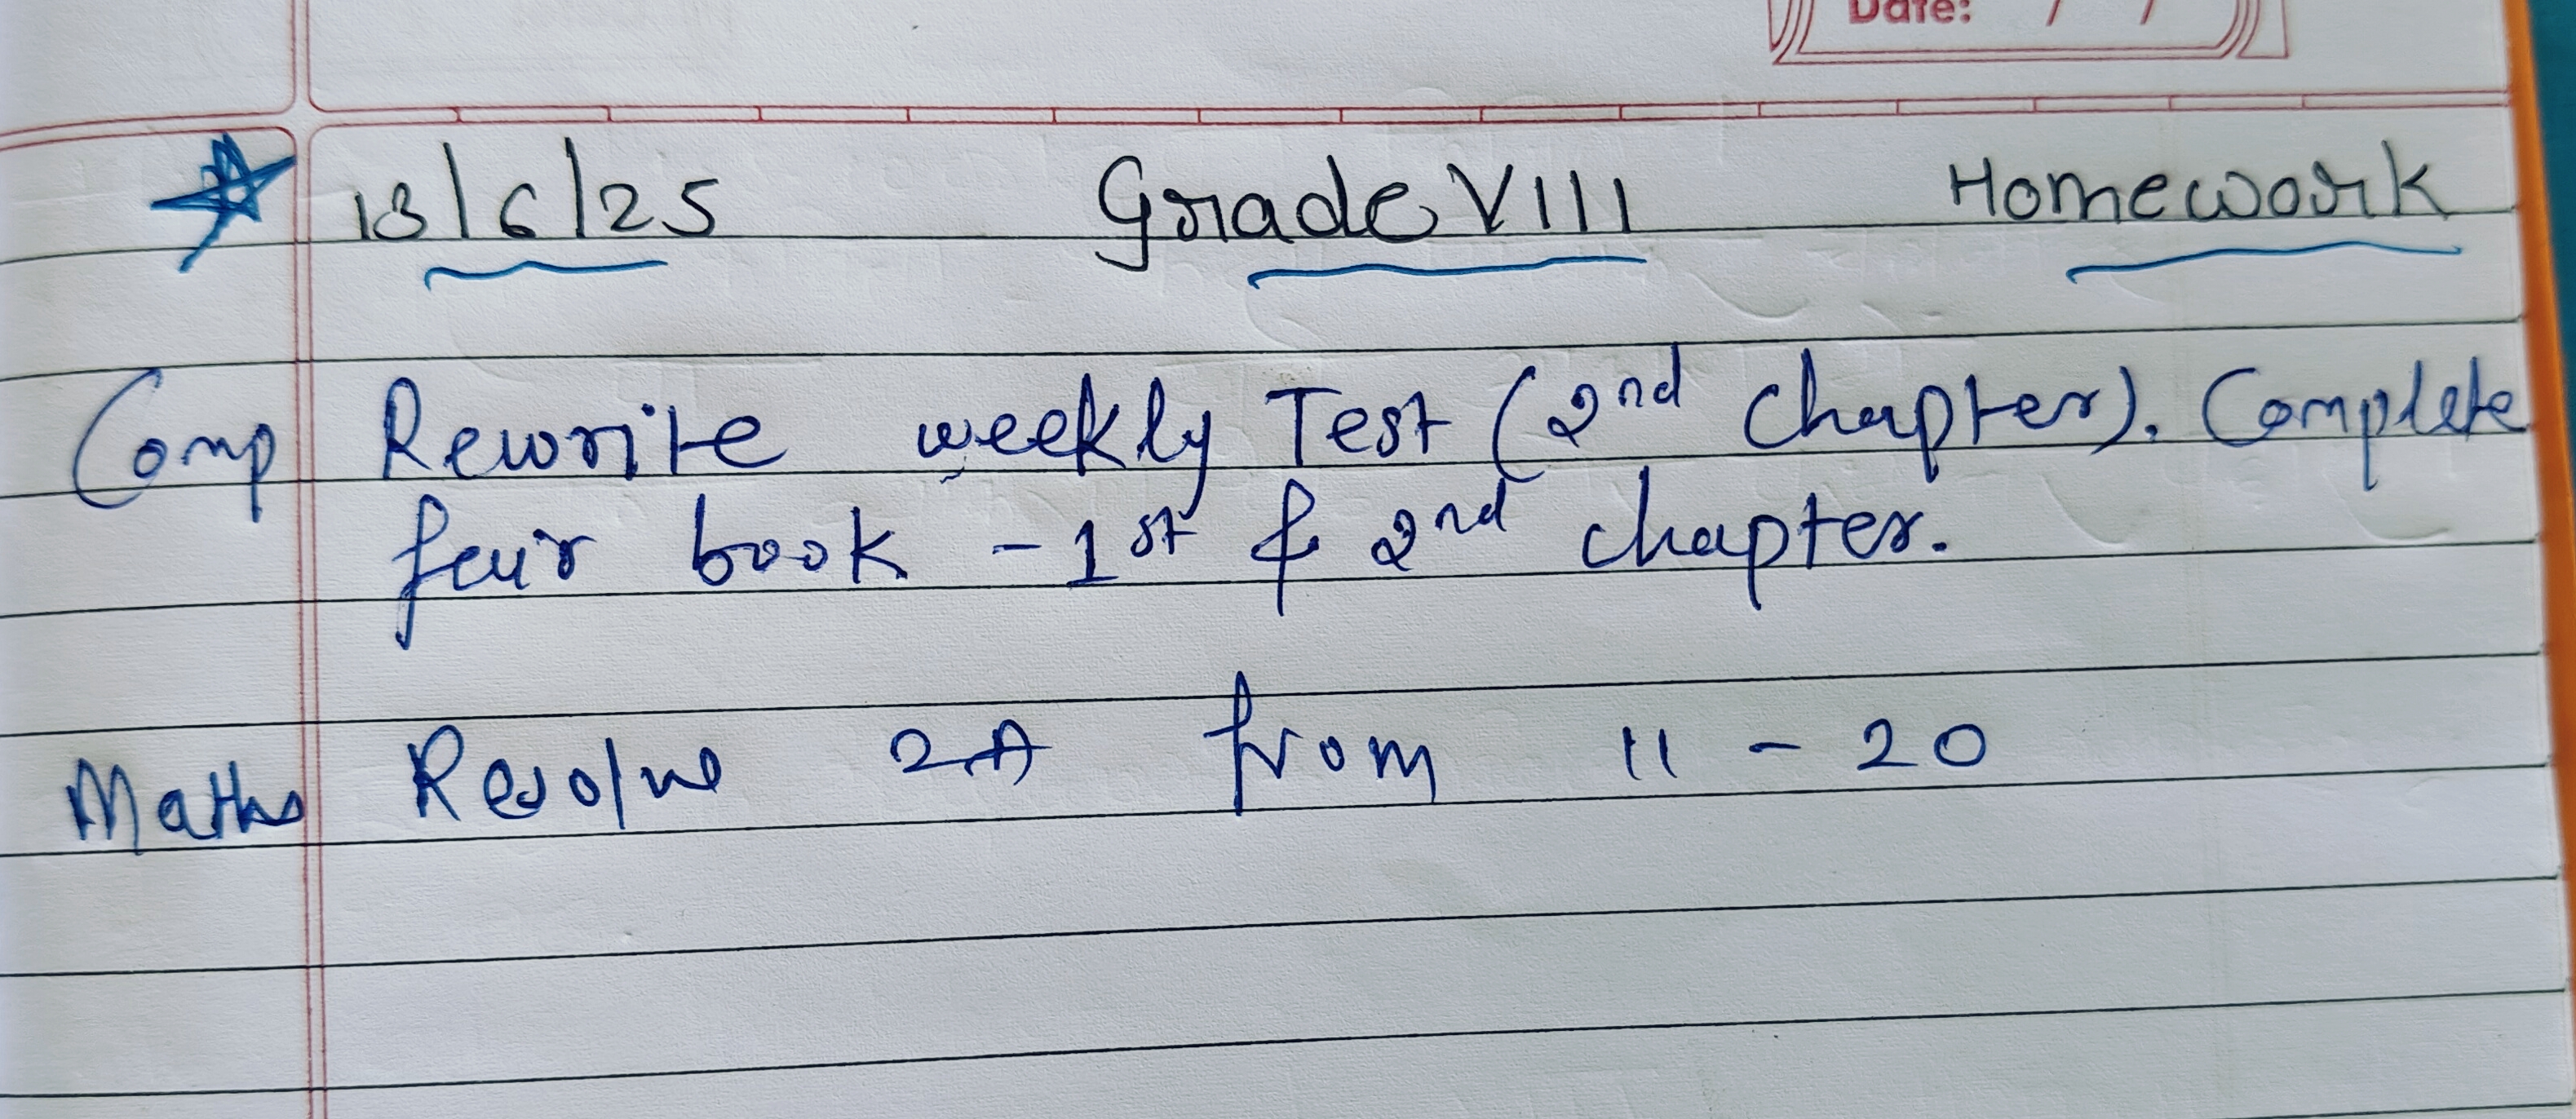 Date: / /
13/6/25 Grade VIII Homework
Comp Rewrite weekly Test (2nd chapter). Complete
fair book - 1st & 2nd chapter.
Maths Resolve 2A from 11 - 20